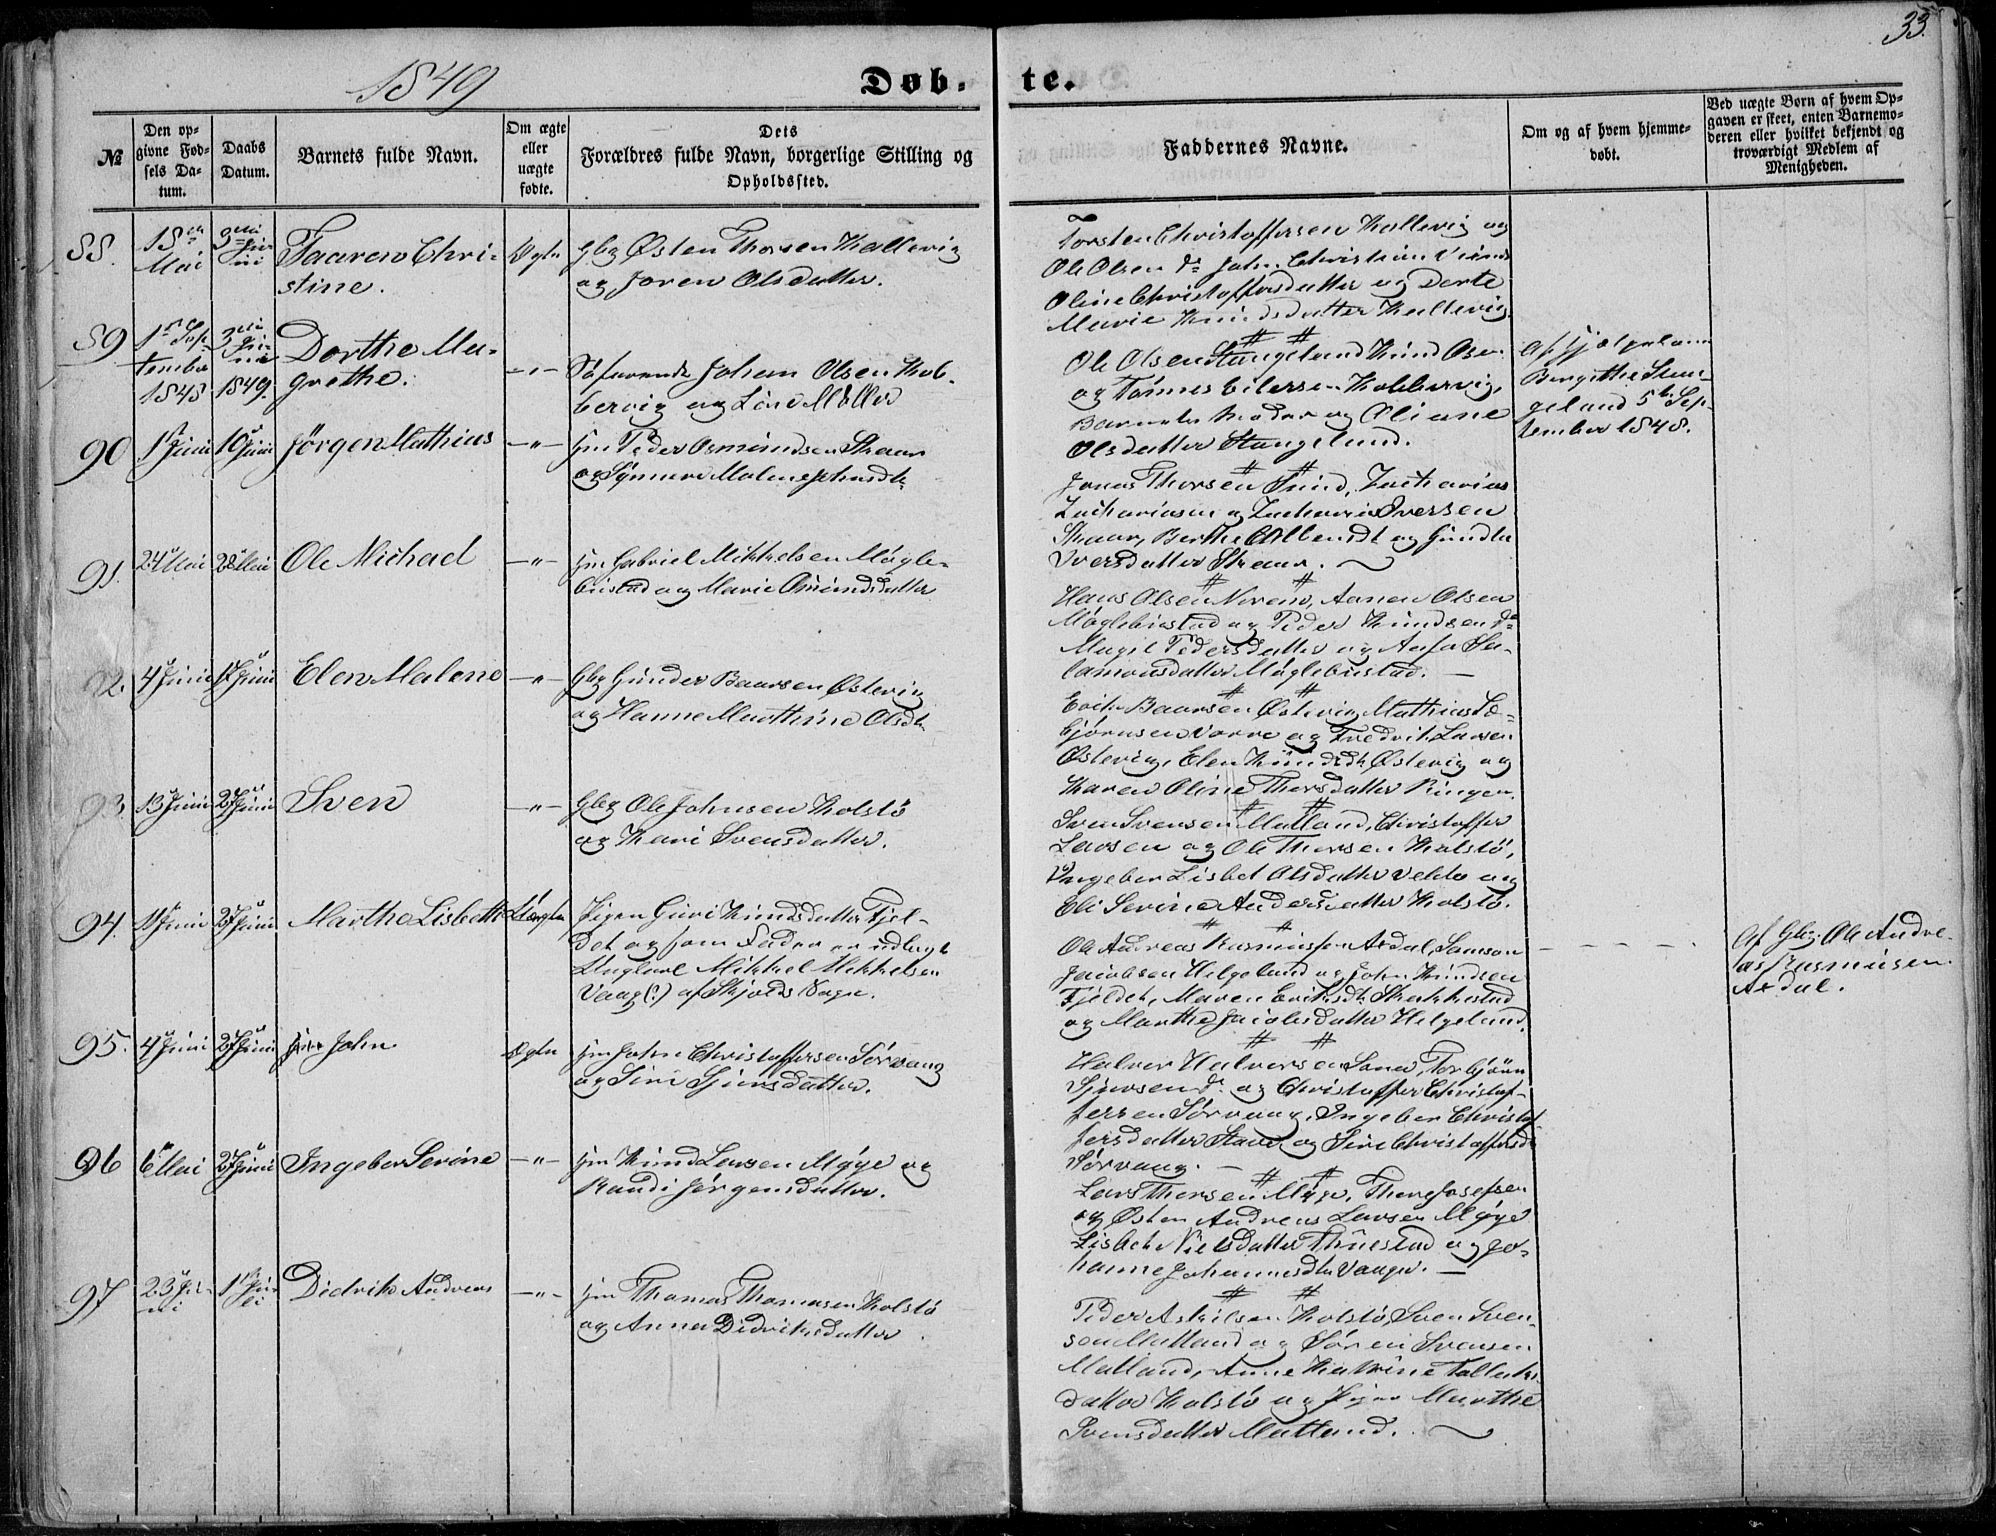 1849
Døb-te.
33.
№
Den opgivne Fødsels Datum.
Daabs Datum.
Barnets fulde Navn.
Om ægte eller uægte fødte.
Dets Forældres fulde Navn, borgerlige Stilling og Opholdssted.
Faddernes Navne.
Om og af hvem hjemmedøbt.
Ved uægte Børn af hvem Opgaven er skeet, enten Barnemoderen eller hvilket bekjendt og troværdigt Medlem af Menigheden.
88.
18de Mai
3die Juni
Taaren Christine.
Ægte
Gbg Østen Thorsen Kallevig
og Joren Olsdatter.
Torsten Christoffersen Kallevig og
Ole Olsen do John Christian
Oline Christoffersdatter og Dorte
Marie Knudsdatter Kallevig.
89
1ste September 1848
3die Juni 1849.
Dorthe Margrethe.
—"—
Søfarende Johan Olsen Kobbervig
og Line Møller
Ole Olsen Stangeland Knud Osen
og Tönnes Eilersen Kobbervig,
Barnets Moder og Oliane
Olsdatter Stangeland.
af
Bergitthe Stangeland 5te September 1848.
90
1 Juni
10 Juni
Jörgen Mathias
—"—
Hm Peder Osmundsen Skaar
og Synneve Malene
Jonas Thorsen Sund, Zacharias
Zachariasen og Zacharias Iversen
Skaar, Berthe og Gunda
Iversdatter Skaar.
91.
24 Mai
28 Mai
Ole Michael
—"—
Hm Gabriel Mikkelsen Møglebustad
og Marie Omundsdatter
Hans Olsen, Aanen Olsen
Møglebustad og Peder Knudsen do
Magil Pedersdatter og Aasa Salamonsdatter
Møglebustad.
92.
4 Juni
17 Juni
Elen Malene
—"—
Gbg Gunder Baarsen Østevig
og Hanne Marthine Olsdt
Erik Baarsen Østevig Mathias Sæbjørnsen
Vorre og Fredrik Larsen
Østevig, Elen Knudsdt Østevig og
Karen Oline Thorsdatter Ringen.
93.
13 Juni
24 Juni
Sven
—"—
Gbg Ole Johnsen Kolstö
og Kari Svensdatter.
Sven Svensen Matland, Christoffer
Larsen og Ole Thorsen Kolstö,
Ingebor Lisbet Olsdatter Velde og
Eli Serine Andersdatter Kolstö.
94.
11 Juni
24 Juni
Marthe Lisbeth
Uægte
Pigen Guri Knudsdatter Fjeldet
og som Fader er udlagt
Ungkarl Mikkel Mikkelsen
Vaag(?) af Skjolds Sogn.
Ole Andreas Rasmussen Aadal, Samson
Jacobsen Helgeland og John Knudsen
Fjeldet, Maren Eriksdt Stakkestad
og Marthe Jacobsdatter Helgeland.
Af Gbg. Ole Andreas
Rasmusen
Aadal.
95.
4 Juni
24 Juni
John
Ægte
Hm John Christoffersen Sørvaag
og Siri Sjursdatter.
Halver Halversen Sanda, Torbjörn
Sjursen do og Christoffer Christoffersen
Sørvaag, Ingebor Christoffersdatter
Stava og Siri Christoffersdt
Sørvaag.
96
6 Mai
24 Juni
Ingebor Serine
—"—
Hm Knud Larsen Møye og
Randi Jørgensdatter.
Lars Thorsen Møye, Thore Josefsen
og Østen Andreas Larsen Møye
Lisbet Nielsdatter Thuestad og Johanne
Johannesdt Vaage.
97
23 Juni
1ste Juli
Didrik Andreas
—"—
Hm Thomas Thomasen Kolstö
og Anna Didriksdatter.
Peder Askilsen Kolstö, Sven Svensen
Matland og Søren Svensen
Matland, Anne Katrine Tallaksdatter
Kolstö og Pigen Marthe
Svensdatter Matland.